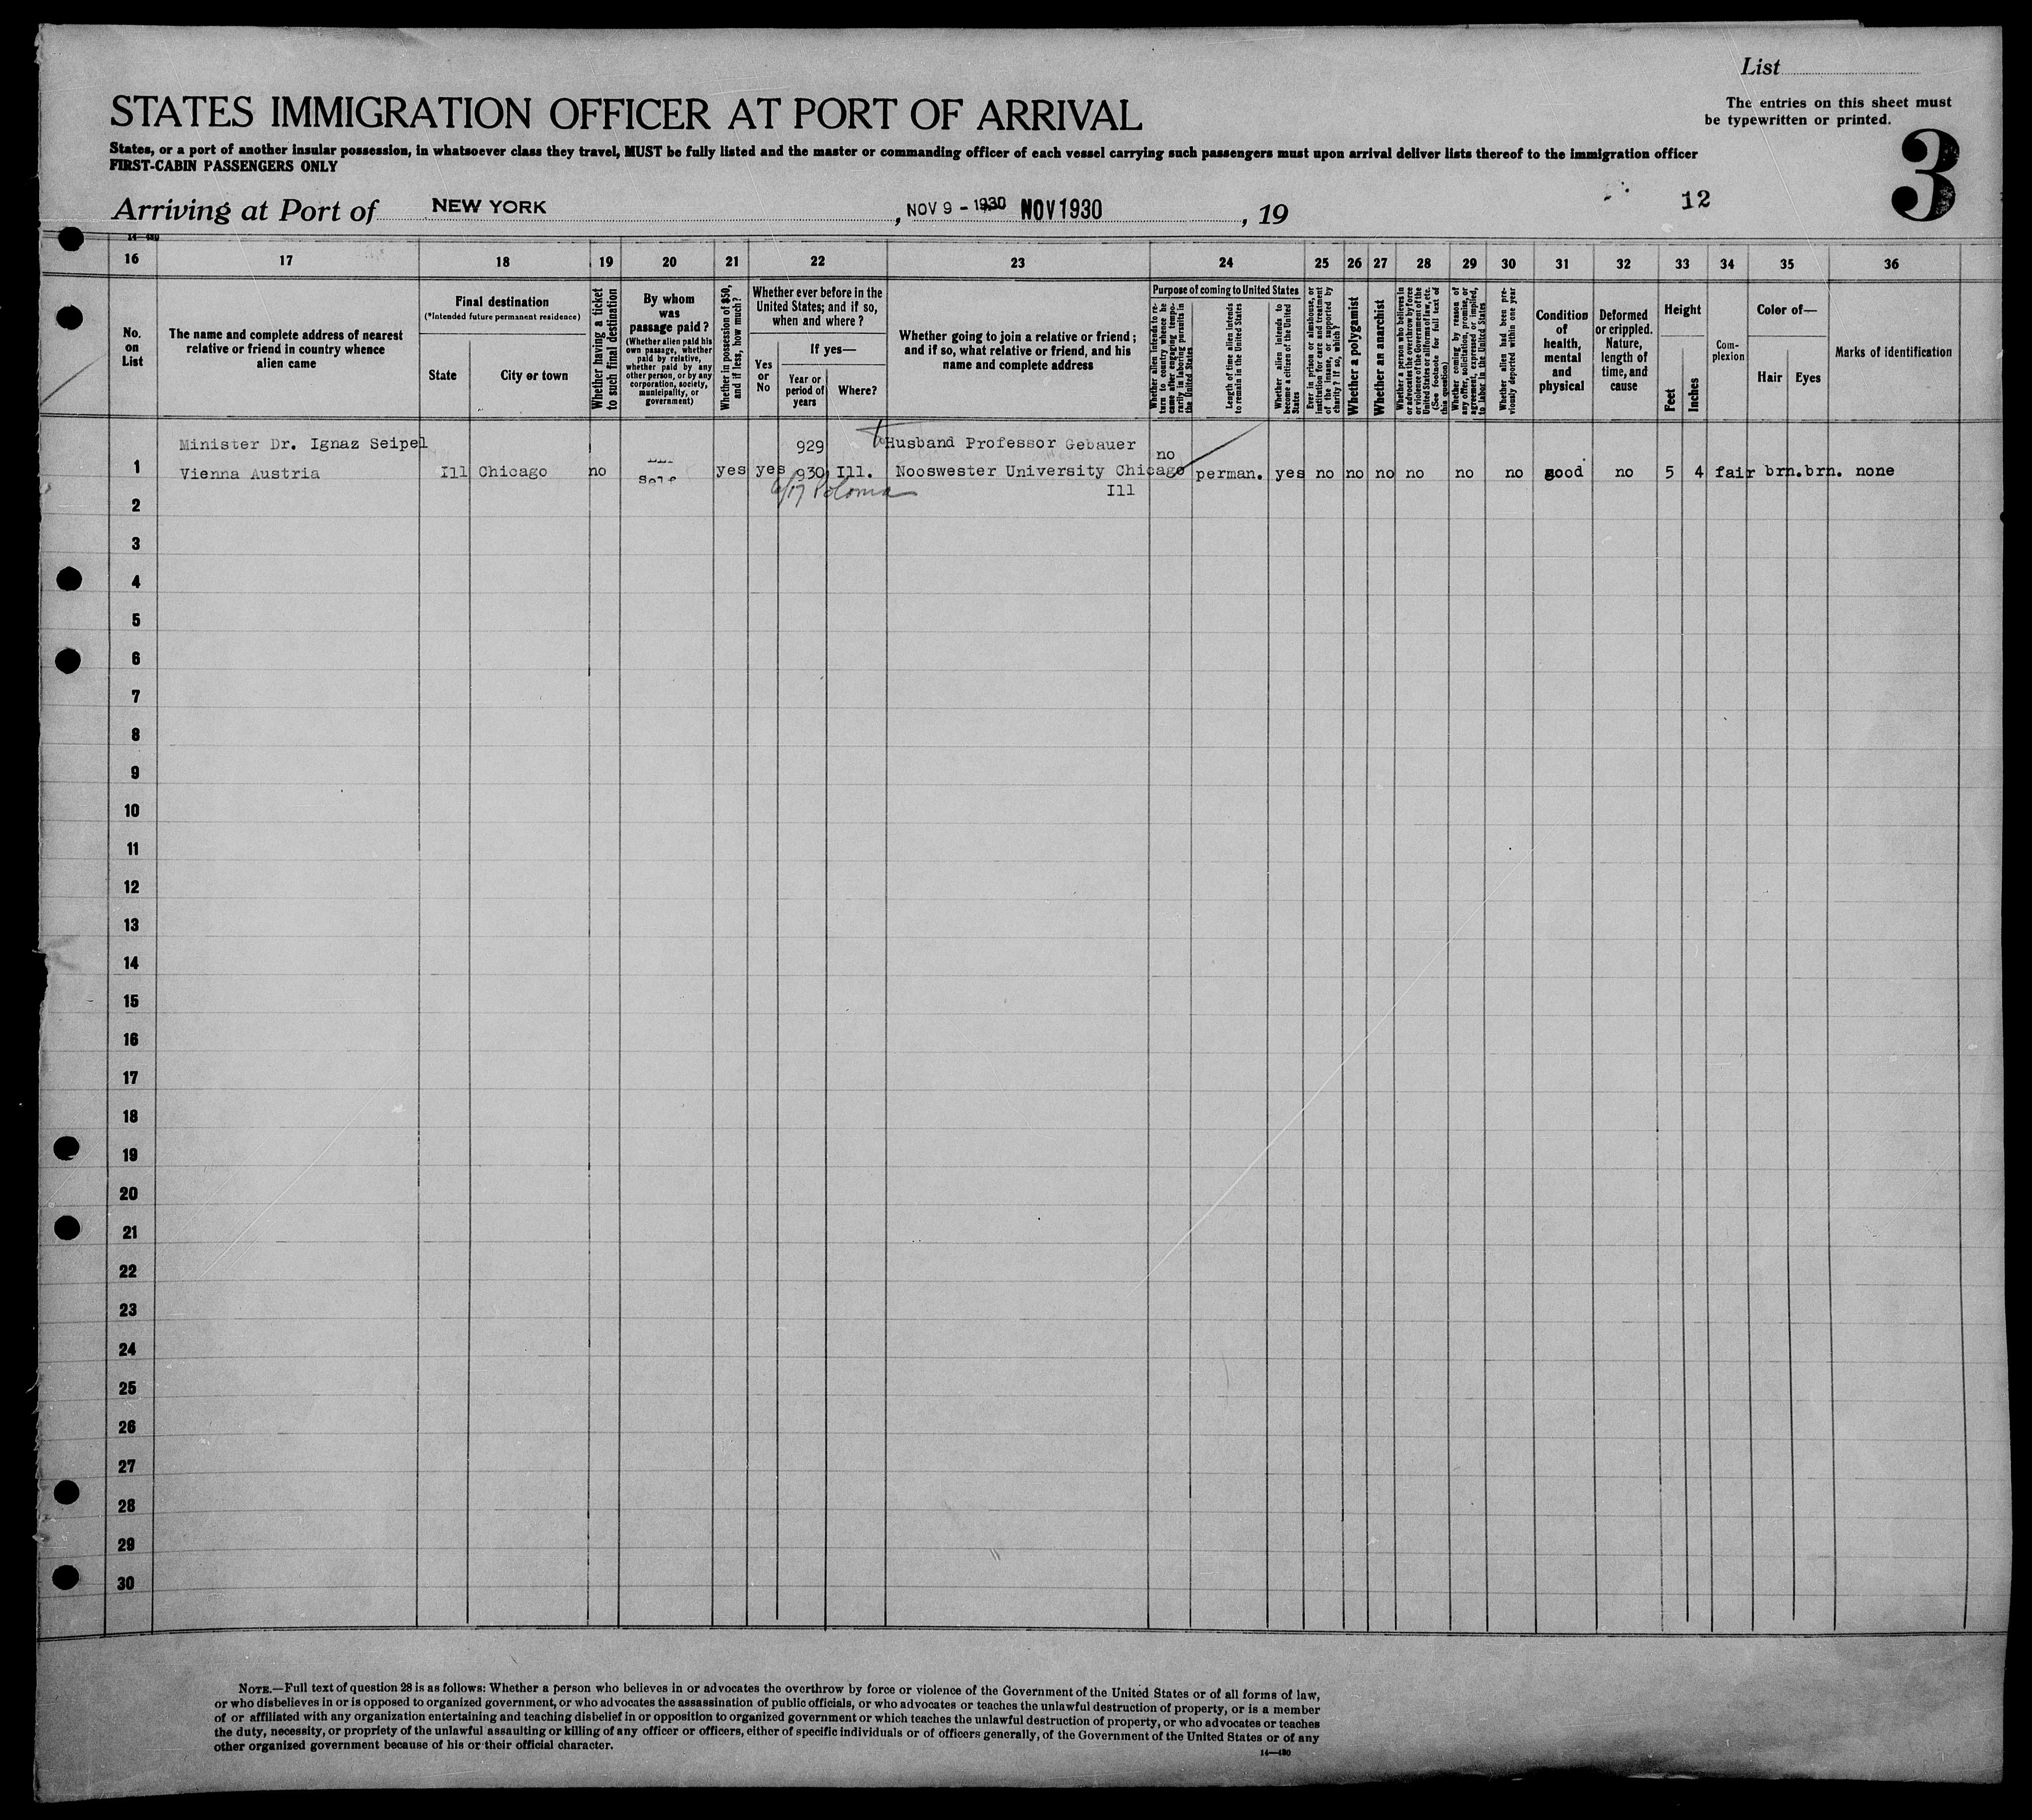 List
STATES IMMIGRATION OFFICER AT PORT OF ARRIVAL
The entries on this sheet must
be typewritten or printed.
States, or a port of another insular possession, in whatsoever class they travel, MUST be fully listed and the master or commanding officer of each vessel carrying such passengers must upon arrival deliver lists thereof to the immigration officer
FIRST-CABIN PASSENGERS ONLY
3
Arriving at Port of NEW YORK, NOV 9 - 1930 NOV 1930, 19
12
14—480
16 17 18 19 20 21 22 23 24 25 26 27 28 29 30 31 32 33 34 35 36
No.
on
List
The name and complete address of nearest
relative or friend in country whence
alien came
Final destination
(*Intended future permanent residence)
State
City or town
Whether having a ticket
to such final destination
By whom
was
passage paid?
(Whether alien paid his
own passage, whether
paid by relative,
whether paid by any
other person, or by any
corporation, society,
municipality, or
government)
Whether in possession of $50,
and if less, how much?
Whether ever before in the
United States; and if so,
when and where?
Yes
or
No
If yes—
Year or
period of
years
Where?
Whether going to join a relative or friend;
and if so, what relative or friend, and his
name and complete address
Purpose of coming to United States
Whether alien intends to re-
turn to country whence he
came after engaging tempo-
rarily in laboring pursuits in
the United States
Length of time alien intends
to remain in the United States
Whether alien intends to
become a citizen of the United
States
Ever in prison or almshouse, or
institution for care and treatment
of the insane, or supported by
charity? If so, which?
Whether a polygamist
Whether an anarchist
Whether a person who believes in
or advocates the overthrow by force
or violence of the Government of the
United States or all forms of law, etc.
(See footnote for full text of
this question)
Whether coming by reason of
any offer, solicitation, promise, or
agreement, expressed or implied,
to labor in the United States
Whether alien had been pre-
viously deported within one year
Condition
of
health,
mental
and
physical
Deformed
or crippled.
Nature,
length of
time, and
cause
Height
Feet
Inches
Com-
plexion
Color of—
Hair
Eyes
Marks of identification
Minister Dr. Ignaz Seipel 929 Husband Professor Gebauer no
1 Vienna Austria Ill Chicago no Self yes yes 930 Ill. Nooswester University Chicago perman. yes no no no no no no good no 5 4 fair brn. brn. none
Ill
2
3
4
5
6
7
8
9
10
11
12
13
14
15
16
17
18
19
20
21
22
23
24
25
26
27
28
29
30
NOTE.—Full text of question 28 is as follows: Whether a person who believes in or advocates the overthrow by force or violence of the Government of the United States or of all forms of law,
or who disbelieves in or is opposed to organized government, or who advocates the assassination of public officials, or who advocates or teaches the unlawful destruction of property, or is a member
of or affiliated with any organization entertaining and teaching disbelief in or opposition to organized government or which teaches the unlawful destruction of property, or who advocates or teaches
the duty, necessity, or propriety of the unlawful assaulting or killing of any officer or officers, either of specific individuals or of officers generally, of the Government of the United States or of any
other organized government because of his or their official character.
14—480